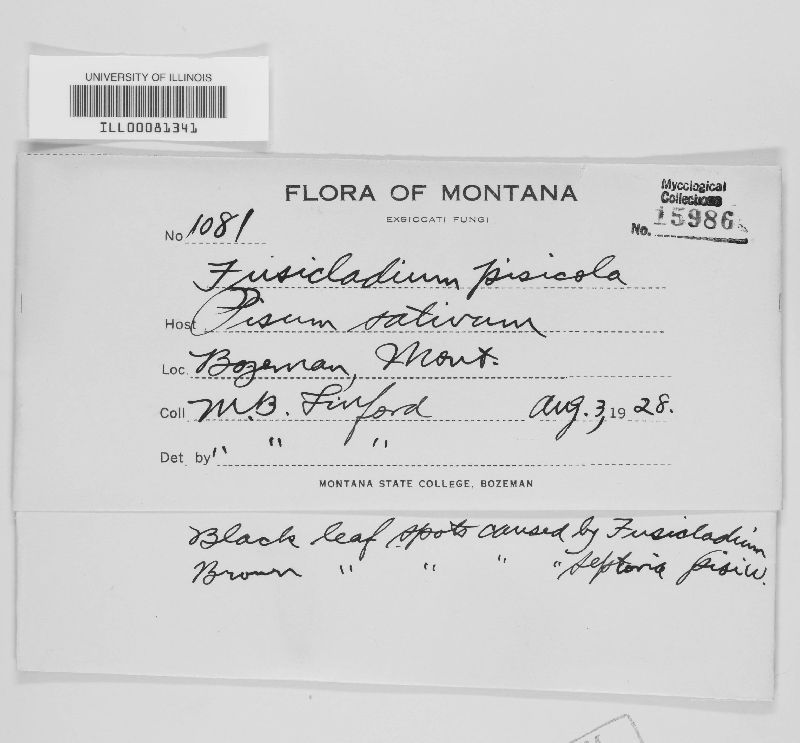 UNIVERSITY OF ILLINOIS
ILL00081341
FLORA OF MONTANA
EXSICCATI FUNGI
Mycological
Collections
No. 15986
No 1081
Fusicladium pisicola
Host Pisum sativum
Loc. Bozeman, Mont.
Coll M.B. Linford Aug. 3, 1928.
Det by " " "
MONTANA STATE COLLEGE, BOZEMAN
Black leaf spots caused by Fusicladium
Brown " " " " Septoria